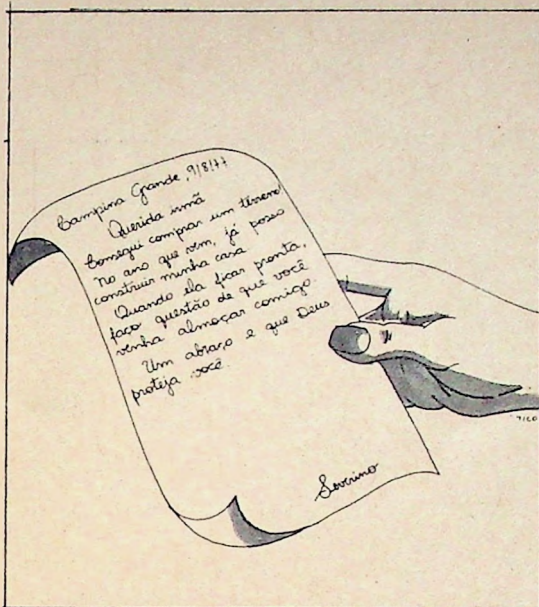 Campina Grande, 9/8/77
Querida irmã
Consegui comprar um terreno
No ano que vem, já posso
construir minha casa
Quando ela ficar pronta,
faço questão de que você
venha almoçar comigo.
Um abraço e que Deus
proteja você.
Severino